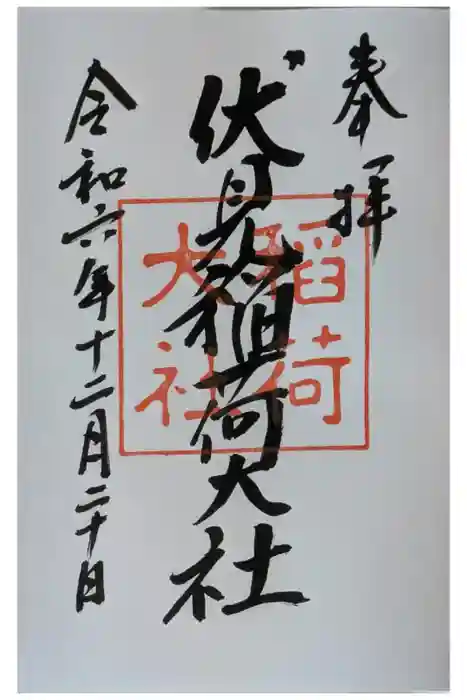 奉拝
伏見稲荷大社
稲荷
大社
令和六年十二月二十日